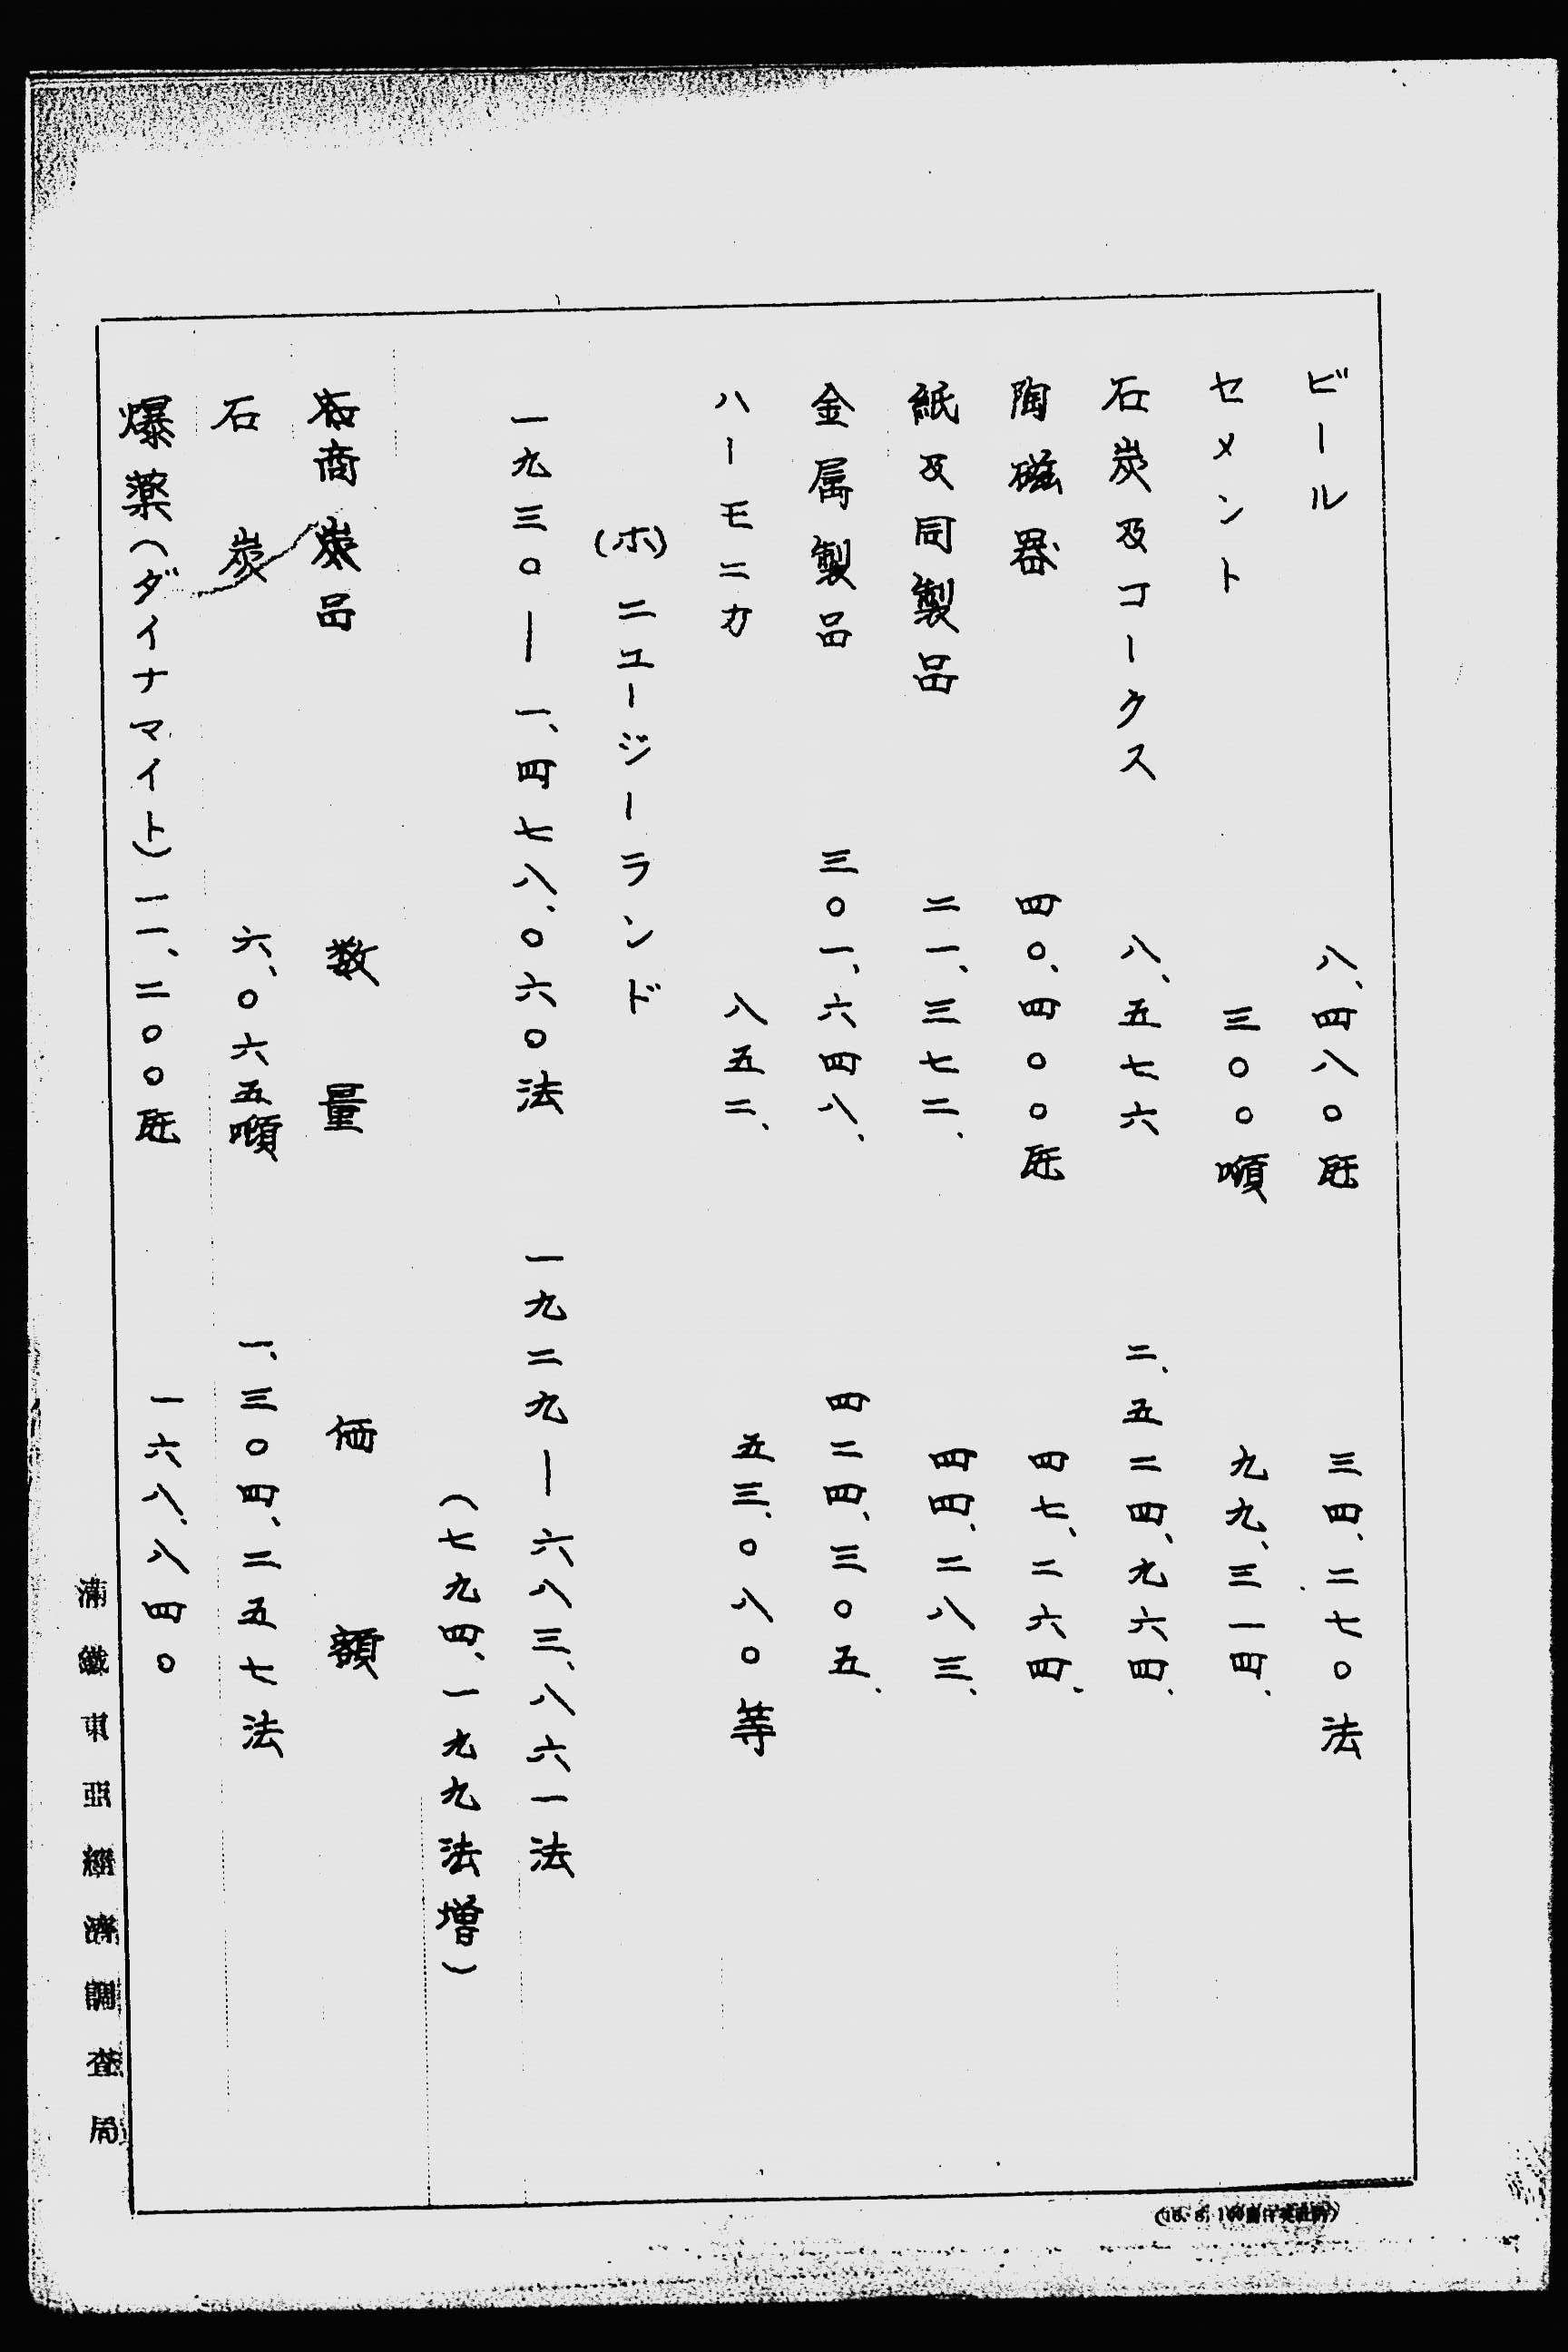 ビール 八、四八〇瓩 三四、二七〇法
セメント 三〇〇噸 九九、三一四、
石炭及コークス 八、五七六 二、五二四、九六四、
陶磁器 四〇、四〇〇瓩 四七、二六四、
紙及同製品 二一、三七二、 四四、二八三、
金属製品 三〇一、六四八、 四二四、三〇五、
ハーモニカ 八五二、 五三、〇八〇等
(ホ) ニュージーランド
一九三〇―一、四七八、〇六〇法 一九二九―六八三、八六一法
(七九四、一九九法増)
商品 数量 価額
石炭 六、〇六五噸 一、三〇四、二五七法
爆薬(ダイナマイト) 一一、二〇〇瓩 一六八、八四〇
満鐵東亞經濟調査局